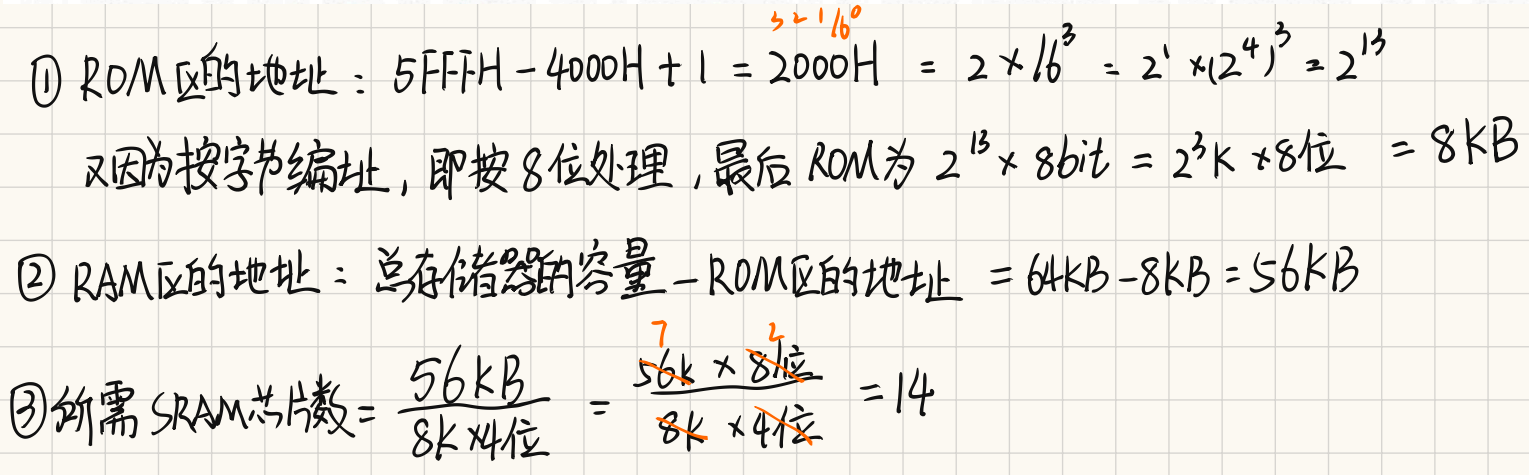 3 2 1 0
① ROM区的地址：5FFFH - 4000H + 1 = 2000H = 2×16³ = 2¹×(2⁴)³ = 2¹³
又因为按字节编址，即按8位处理，最后ROM为 2¹³×8bit = 2³K×8位 = 8KB
② RAM区的地址：总存储器的容量 - ROM区的地址 = 64KB - 8KB = 56KB
7 2
③ 所需SRAM芯片数 = 56KB / 8K×4位 = 56K×8位 / 8K×4位 = 14